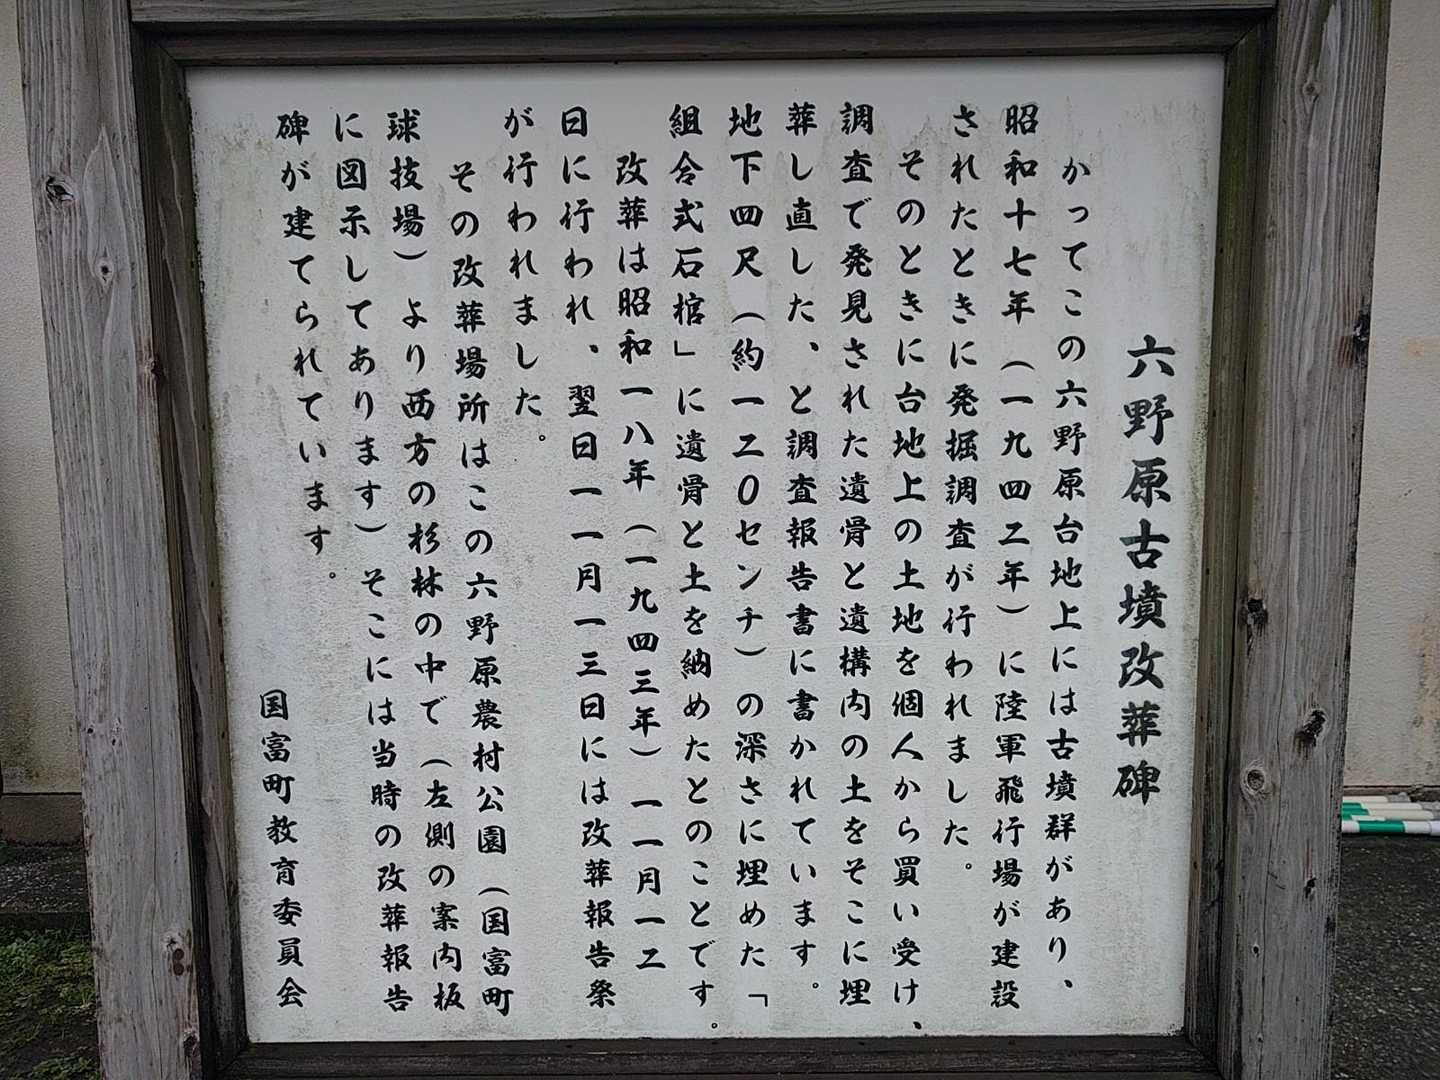 六野原古墳改葬碑
かってこの六野原台地上には古墳群があり、
昭和十七年（一九四二年）に陸軍飛行場が建設
されたときに発掘調査が行われました。
そのときに台地上の土地を個人から買い受け、
調査で発見された遺骨と遺構内の土をそこに埋
葬し直した、と調査報告書に書かれています。
地下四尺（約一二０センチ）の深さに埋めた「
組合式石棺」に遺骨と土を納めたとのことです。
改葬は昭和一八年（一九四三年）一一月一二
日に行われ、翌日一一月一三日には改葬報告祭
が行われました。
その改葬場所はこの六野原農村公園（国富町
球技場）より西方の杉林の中で（左側の案内板
に図示してあります）そこには当時の改葬報告
碑が建てられています。
国富町教育委員会